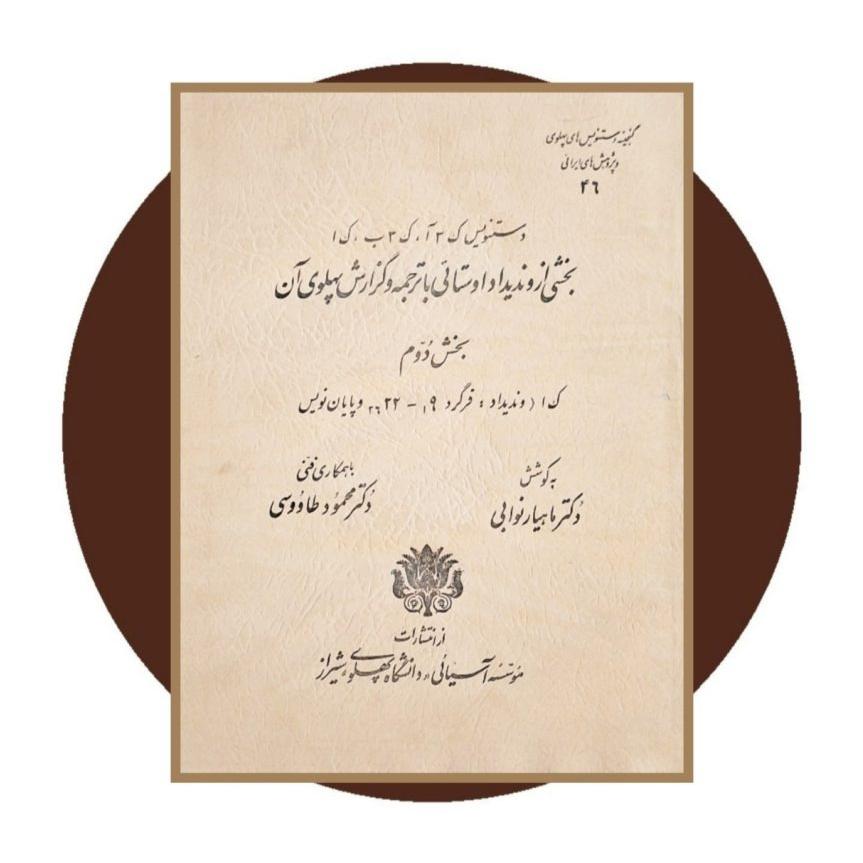 گنجینهٔ دستنویس‌های پهلوی
و پژوهش‌های ایرانی
۴۶
دستنویس ک ۳ آ، ک ۳ ب، ک ۱
بخشی از وندیداد اوستائی با ترجمه و گزارش پهلوی آن
بخش دُوّم
ک ۱ (وندیداد: فرگرد ۱۹٫۱ – ۲۲٫۲۶ و پایان نویس
به کوشش
دُکتر ماهیار نوابی
با همکاری فنّی
دُکتر محمُود طاوُوسی
از انتشارات
مؤسّسه آسیائی، دانشگاه پهلوی، شیراز